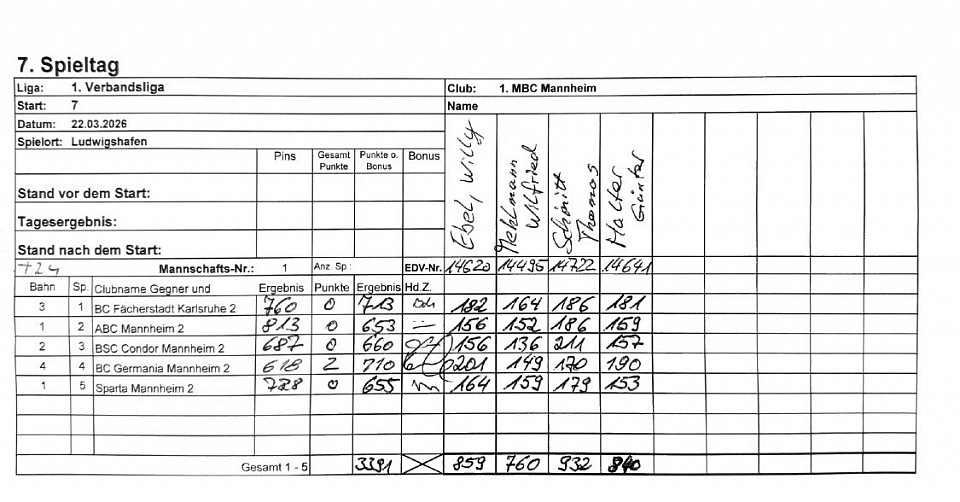 7. Spieltag
Liga: 1. Verbandsliga Club: 1. MBC Mannheim
Start: 7 Name
Datum: 22.03.2026
Spielort: Ludwigshafen
Pins Gesamt Punkte Punkte o. Bonus Bonus
Ebel, Willy
Mehlmann Wilfried
Schmitt Thomas
Halter Günter
Stand vor dem Start:
Tagesergebnis:
Stand nach dem Start:
+24 Mannschafts-Nr.: 1 Anz. Sp.: EDV-Nr. 14620 14495 14722 14641
Bahn Sp. Clubname Gegner und Ergebnis Punkte Ergebnis Hd.Z.
3 1 BC Fächerstadt Karlsruhe 2 760 0 713 182 164 186 181
1 2 ABC Mannheim 2 813 0 653 156 152 186 159
2 3 BSC Condor Mannheim 2 687 0 660 156 136 211 157
4 4 BC Germania Mannheim 2 618 2 710 201 149 170 190
1 5 Sparta Mannheim 2 728 0 655 164 159 179 153
Gesamt 1 - 5 3391 859 760 932 840